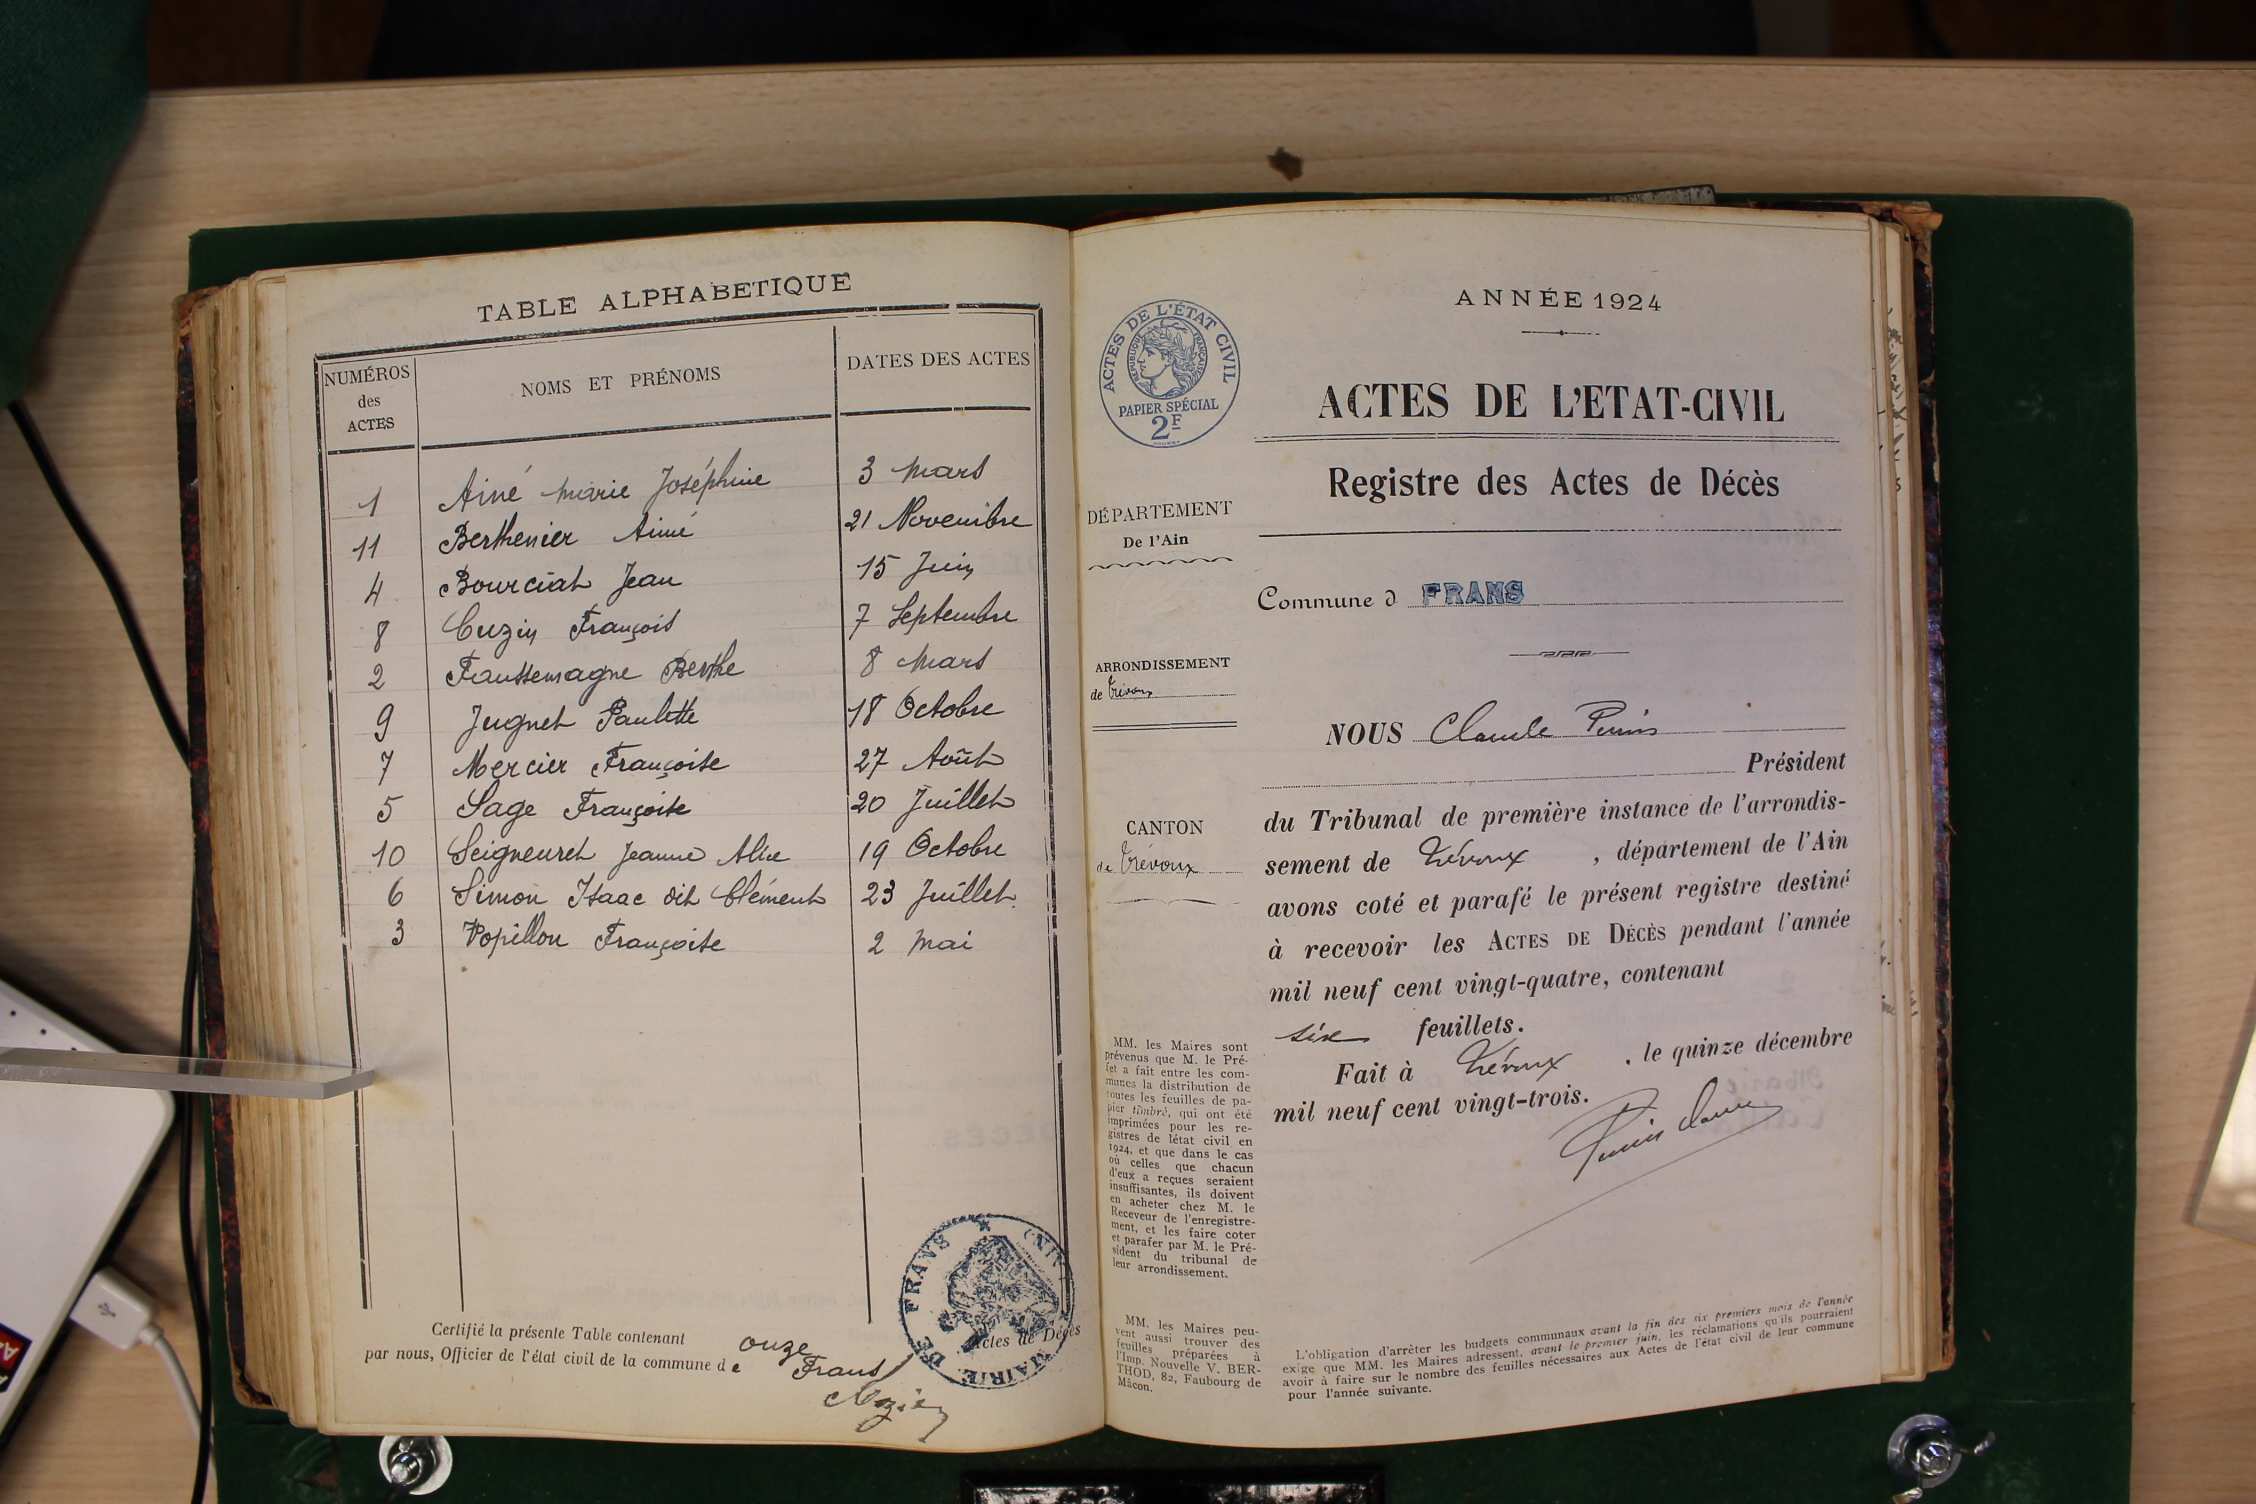 TABLE ALPHABETIQUE
NUMÉROS des ACTES NOMS ET PRÉNOMS DATES DES ACTES
1 Ainé Marie Joséphine 3 Mars
11 Berthenier Aimé 21 Novembre
4 Bourciat Jean 15 Juin
8 Cuzin François 7 Septembre
2 Faussemagne Berthe 8 Mars
9 Jugnet Paulette 18 Octobre
7 Mercier Françoise 27 Août
5 Sage Françoise 20 Juillet
10 Seigneuret Jeanne Alice 19 Octobre
6 Simon Isaac dit Clément 23 Juillet
3 Popillon Françoise 2 Mai
Certifié la présente Table contenant onze Actes de Décès
par nous, Officier de l'état civil de la commune de Frans
MAIRIE DE FRANS (AIN)
ANNÉE 1924
ACTES DE L'ÉTAT CIVIL
RÉPUBLIQUE FRANÇAISE
PAPIER SPÉCIAL
2F
ACTES DE L'ETAT-CIVIL
Registre des Actes de Décès
DÉPARTEMENT
De l'Ain
Commune d FRANS
ARRONDISSEMENT
de Trévoux
CANTON
de Trévoux
NOUS Claude
Président
du Tribunal de première instance de l'arrondis-
sement de Trévoux, département de l'Ain
avons coté et parafé le présent registre destiné
à recevoir les ACTES DE DÉCÈS pendant l'année
mil neuf cent vingt-quatre, contenant
six feuillets.
Fait à Trévoux, le quinze décembre
mil neuf cent vingt-trois.
MM. les Maires sont
prévenus que M. le Pré-
fet a fait entre les com-
munes la distribution de
toutes les feuilles de pa-
pier timbré, qui ont été
imprimées pour les re-
gistres de létat civil en
1924, et que dans le cas
où celles que chacun
d'eux a reçues seraient
insuffisantes, ils doivent
en acheter chez M. le
Receveur de l'enregistre-
ment, et les faire coter
et parafer par M. le Pré-
sident du tribunal de
leur arrondissement.
MM. les Maires peu-
vent aussi trouver des
feuilles préparées à
l'Imp. Nouvelle V. BER-
THOD, 82, Faubourg de
Mâcon.
L'obligation d'arrêter les budgets communaux avant la fin des six premiers mois de l'année
exige que MM. les Maires adressent, avant le premier juin, les réclamations qu'ils pourraient
avoir à faire sur le nombre des feuilles nécessaires aux Actes de l'état civil de leur commune
pour l'année suivante.